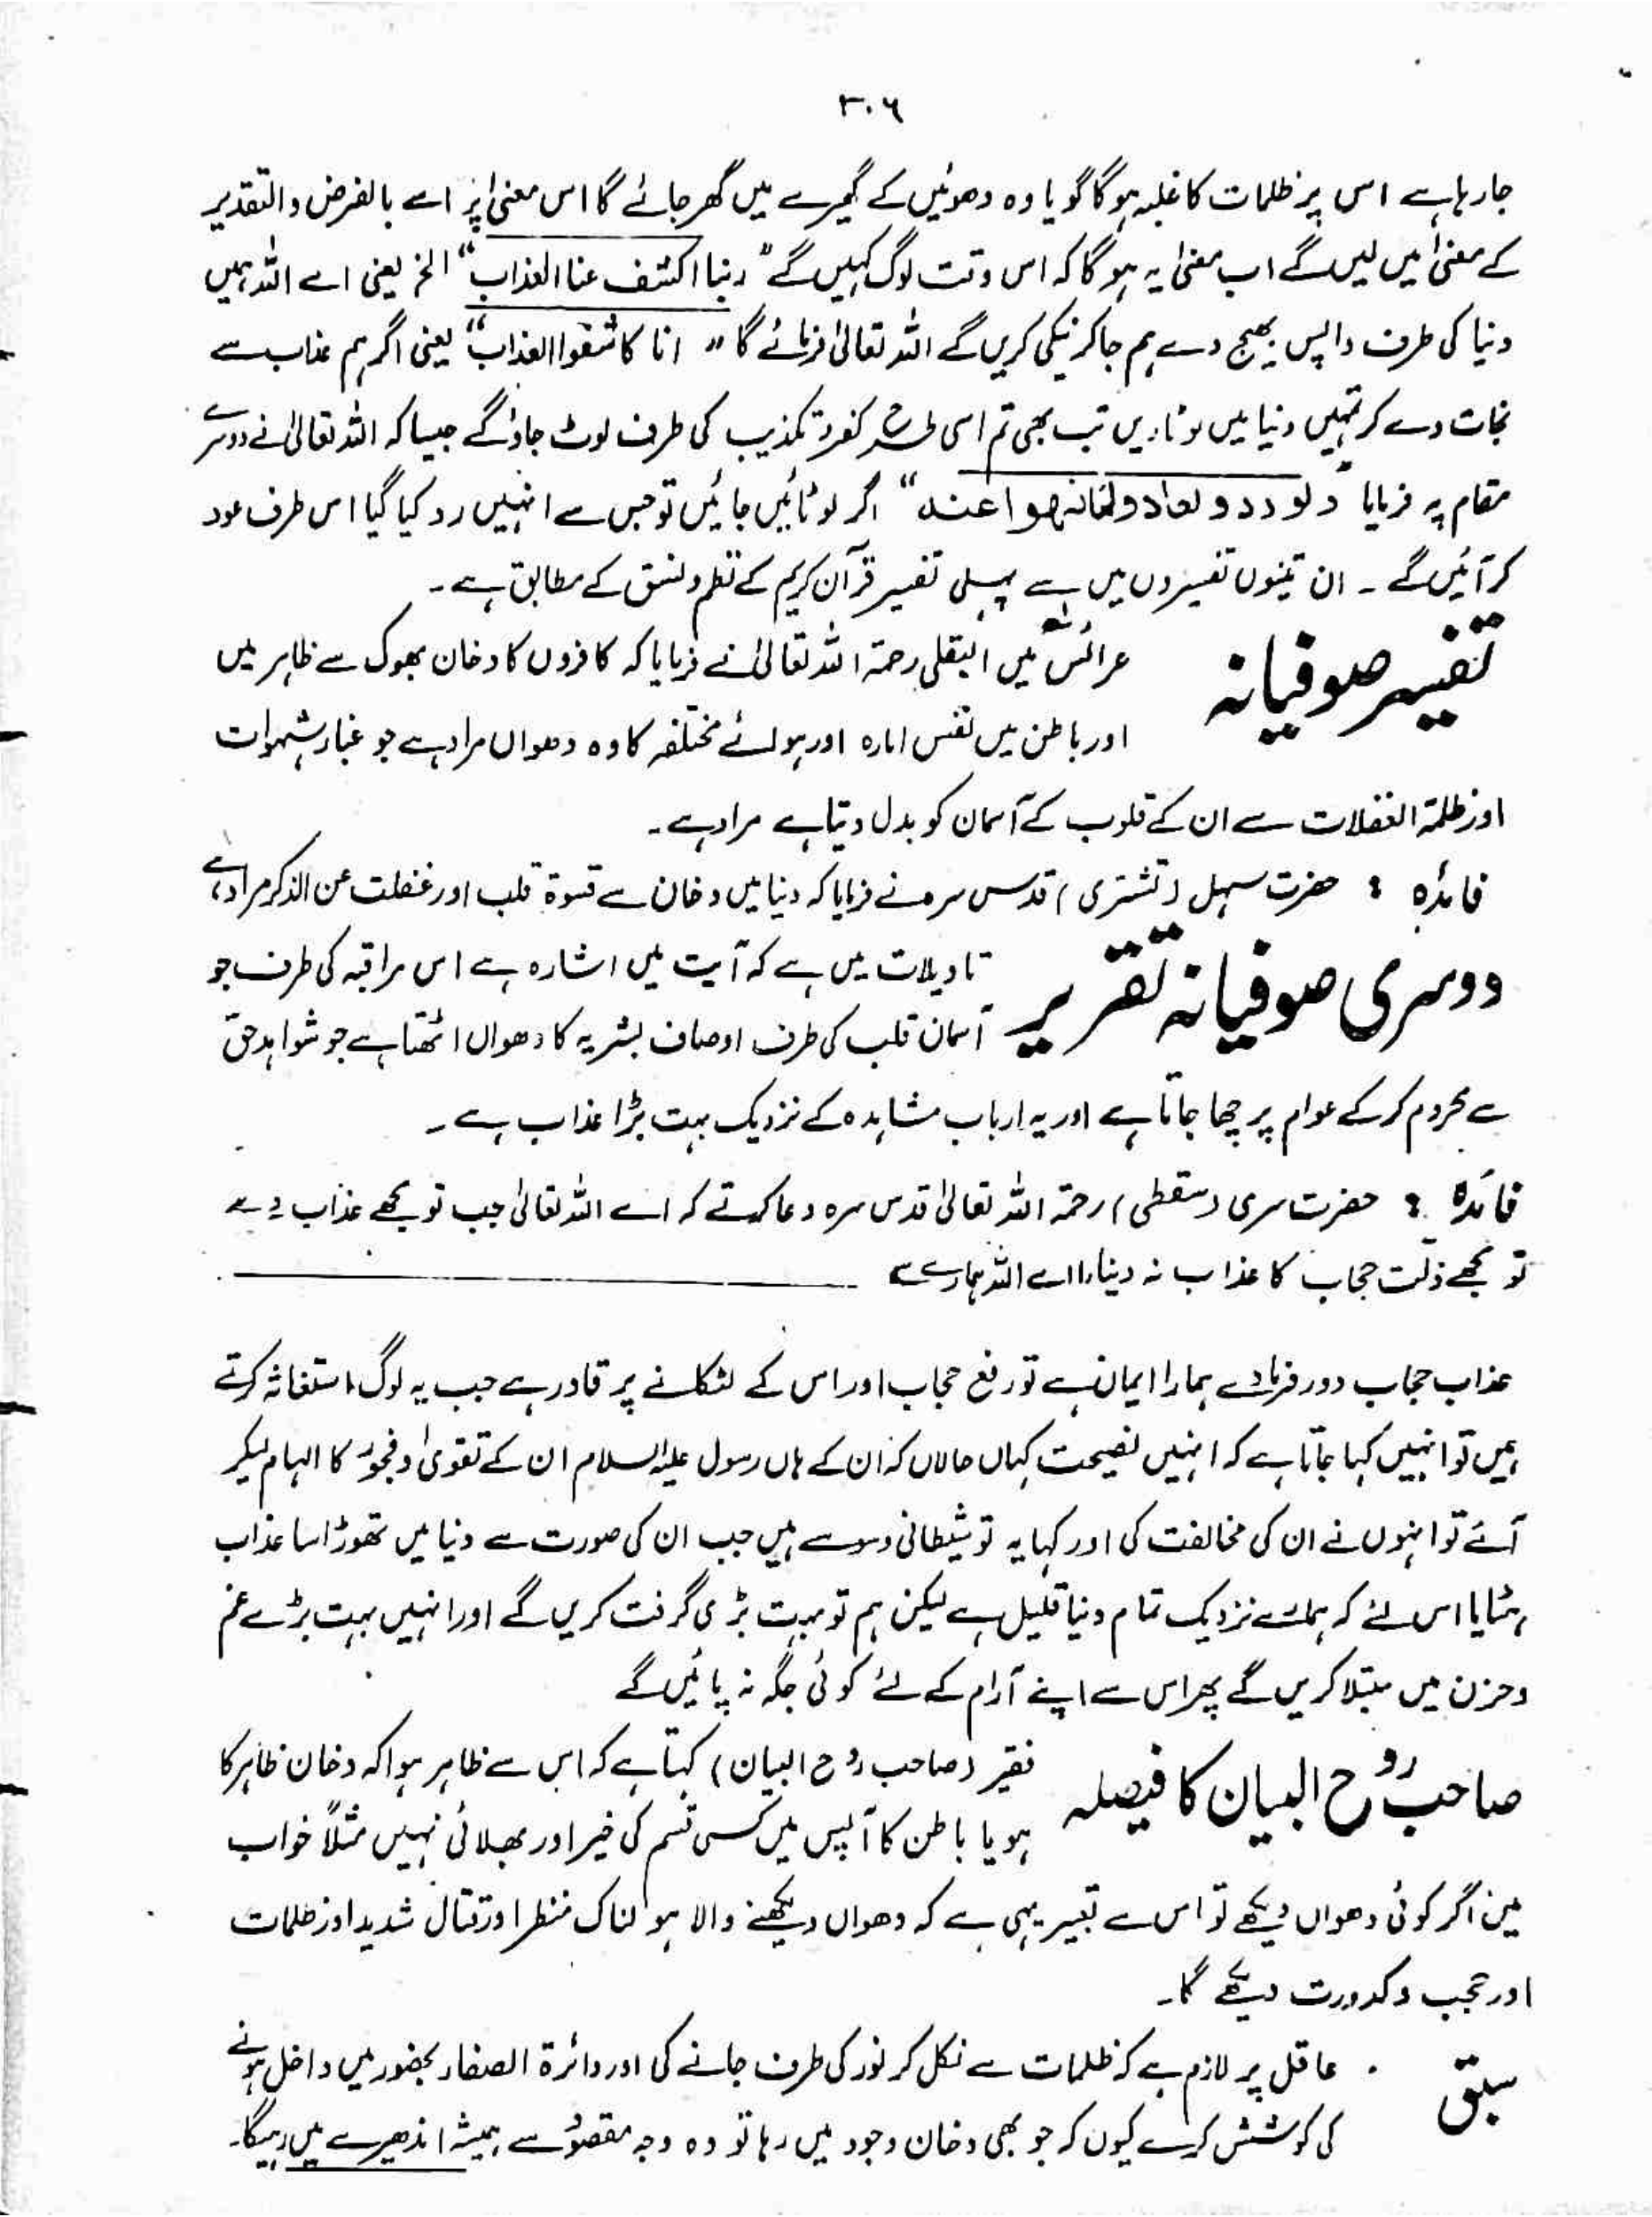 ۳۰۶
جا رہا ہے اس پر ظلمات کا غلبہ ہو گا گویا وہ دھوئیں کے گھیرے میں گھر جائے گا اس معنیٰ پر اسے بالفرض والتقدیر
کے معنیٰ میں لیں گے اب معنیٰ یہ ہو گا کہ اس وقت لوگ کہیں گے "ربنا اکشف عنا العذاب" الخ یعنی اے اللہ ہمیں
دنیا کی طرف واپس بھیج دے ہم جا کر نیکی کریں گے اللہ تعالیٰ فرمائے گا "انا کاشفوا العذاب" یعنی اگر ہم عذاب سے
نجات دے کر تمہیں دنیا میں لوٹا دیں تب بھی تم اسی طرح کفر و تکذیب کی طرف لوٹ جاؤ گے جیسا کہ اللہ تعالیٰ نے دوسرے
مقام پہ فرمایا "ولو ردو لعادو لمانہوا عنہ" اگر لوٹائیں جائیں تو جس سے انہیں رد کیا گیا اس طرف عود
کر آئیں گے ۔ ان تینوں تفسیروں میں سے پہلی تفسیر قرآن کریم کے نظم و نسق کے مطابق ہے ۔
تفسیر صوفیانہ
عرائس میں البقلی رحمۃ اللہ تعالیٰ نے فرمایا کہ کافروں کا دخان بھوک سے ظاہر میں
اور باطن میں نفس امارہ اور ہوائے مختلفہ کا وہ دھواں مراد ہے جو غبار شہوات
اور ظلمۃ الغفلات سے ان کے قلوب کے آسمان کو بدل دیتا ہے مراد ہے ۔
فائدہ : حضرت سہل (تشتری) قدس سرہ نے فرمایا کہ دنیا میں دخان سے قسوۃ قلب اور غفلت عن الذکر مراد ہے
دوسری صوفیانہ تقریر
تاویلات میں ہے کہ آیت میں اشارہ ہے اس مراقبہ کی طرف جو
آسمان قلب کی طرف اوصاف بشریہ کا دھواں اٹھتا ہے جو شواہد حق
سے محروم کر کے عوام پر چھا جاتا ہے اور یہ ارباب مشاہدہ کے نزدیک بہت بڑا عذاب ہے ۔
فائدہ : حضرت سری (سقطی) رحمۃ اللہ تعالیٰ قدس سرہ دعا کرتے کہ اے اللہ تعالیٰ جب تو مجھے عذاب دے
تو مجھے ذلت حجاب کا عذاب نہ دینا، اے اللہ ہمارے سے
عذاب حجاب دور فرما دے ہمارا ایمان ہے تو رفع حجاب اور اس کے لٹکانے پر قادر ہے جب یہ لوگ استغاثہ کرتے
ہیں تو انہیں کہا جاتا ہے کہ انہیں نصیحت کہاں حالاں کہ ان کے ہاں رسول علیہ السلام ان کے تقویٰ و فجور کا الہام لیکر
آئے تو انہوں نے ان کی مخالفت کی اور کہا یہ تو شیطانی وسوسے ہیں جب ان کی صورت سے دنیا میں تھوڑا سا عذاب
ہٹایا اس لئے کہ ہمارے نزدیک تمام دنیا قلیل ہے لیکن ہم تو بہت بڑی گرفت کریں گے اور انہیں بہت بڑے غم
و حزن میں مبتلا کریں گے پھر اس سے اپنے آرام کے لئے کوئی جگہ نہ پائیں گے
صاحب روح البیان کا فیصلہ
فقیر (صاحب روح البیان) کہتا ہے کہ اس سے ظاہر ہوا کہ دخان ظاہر کا
ہو یا باطن کا آپس میں کسی قسم کی خیر اور بھلائی نہیں مثلاً خواب
میں اگر کوئی دھواں دیکھے تو اس سے تعبیر یہی ہے کہ دھواں دیکھنے والا ہولناک منظر اور قتال شدید اور ظلمات
اور حجب و کدورت دیکھے گا۔
سبق
عاقل پر لازم ہے کہ ظلمات سے نکل کر نور کی طرف جانے کی اور دائرۃ الصفاء بحضور میں داخل ہونے
کی کوشش کرے کیوں کہ جو بھی دخان وجود میں رہا تو وہ وجہ مقصود سے ہمیشہ اندھیرے میں رہیگا۔